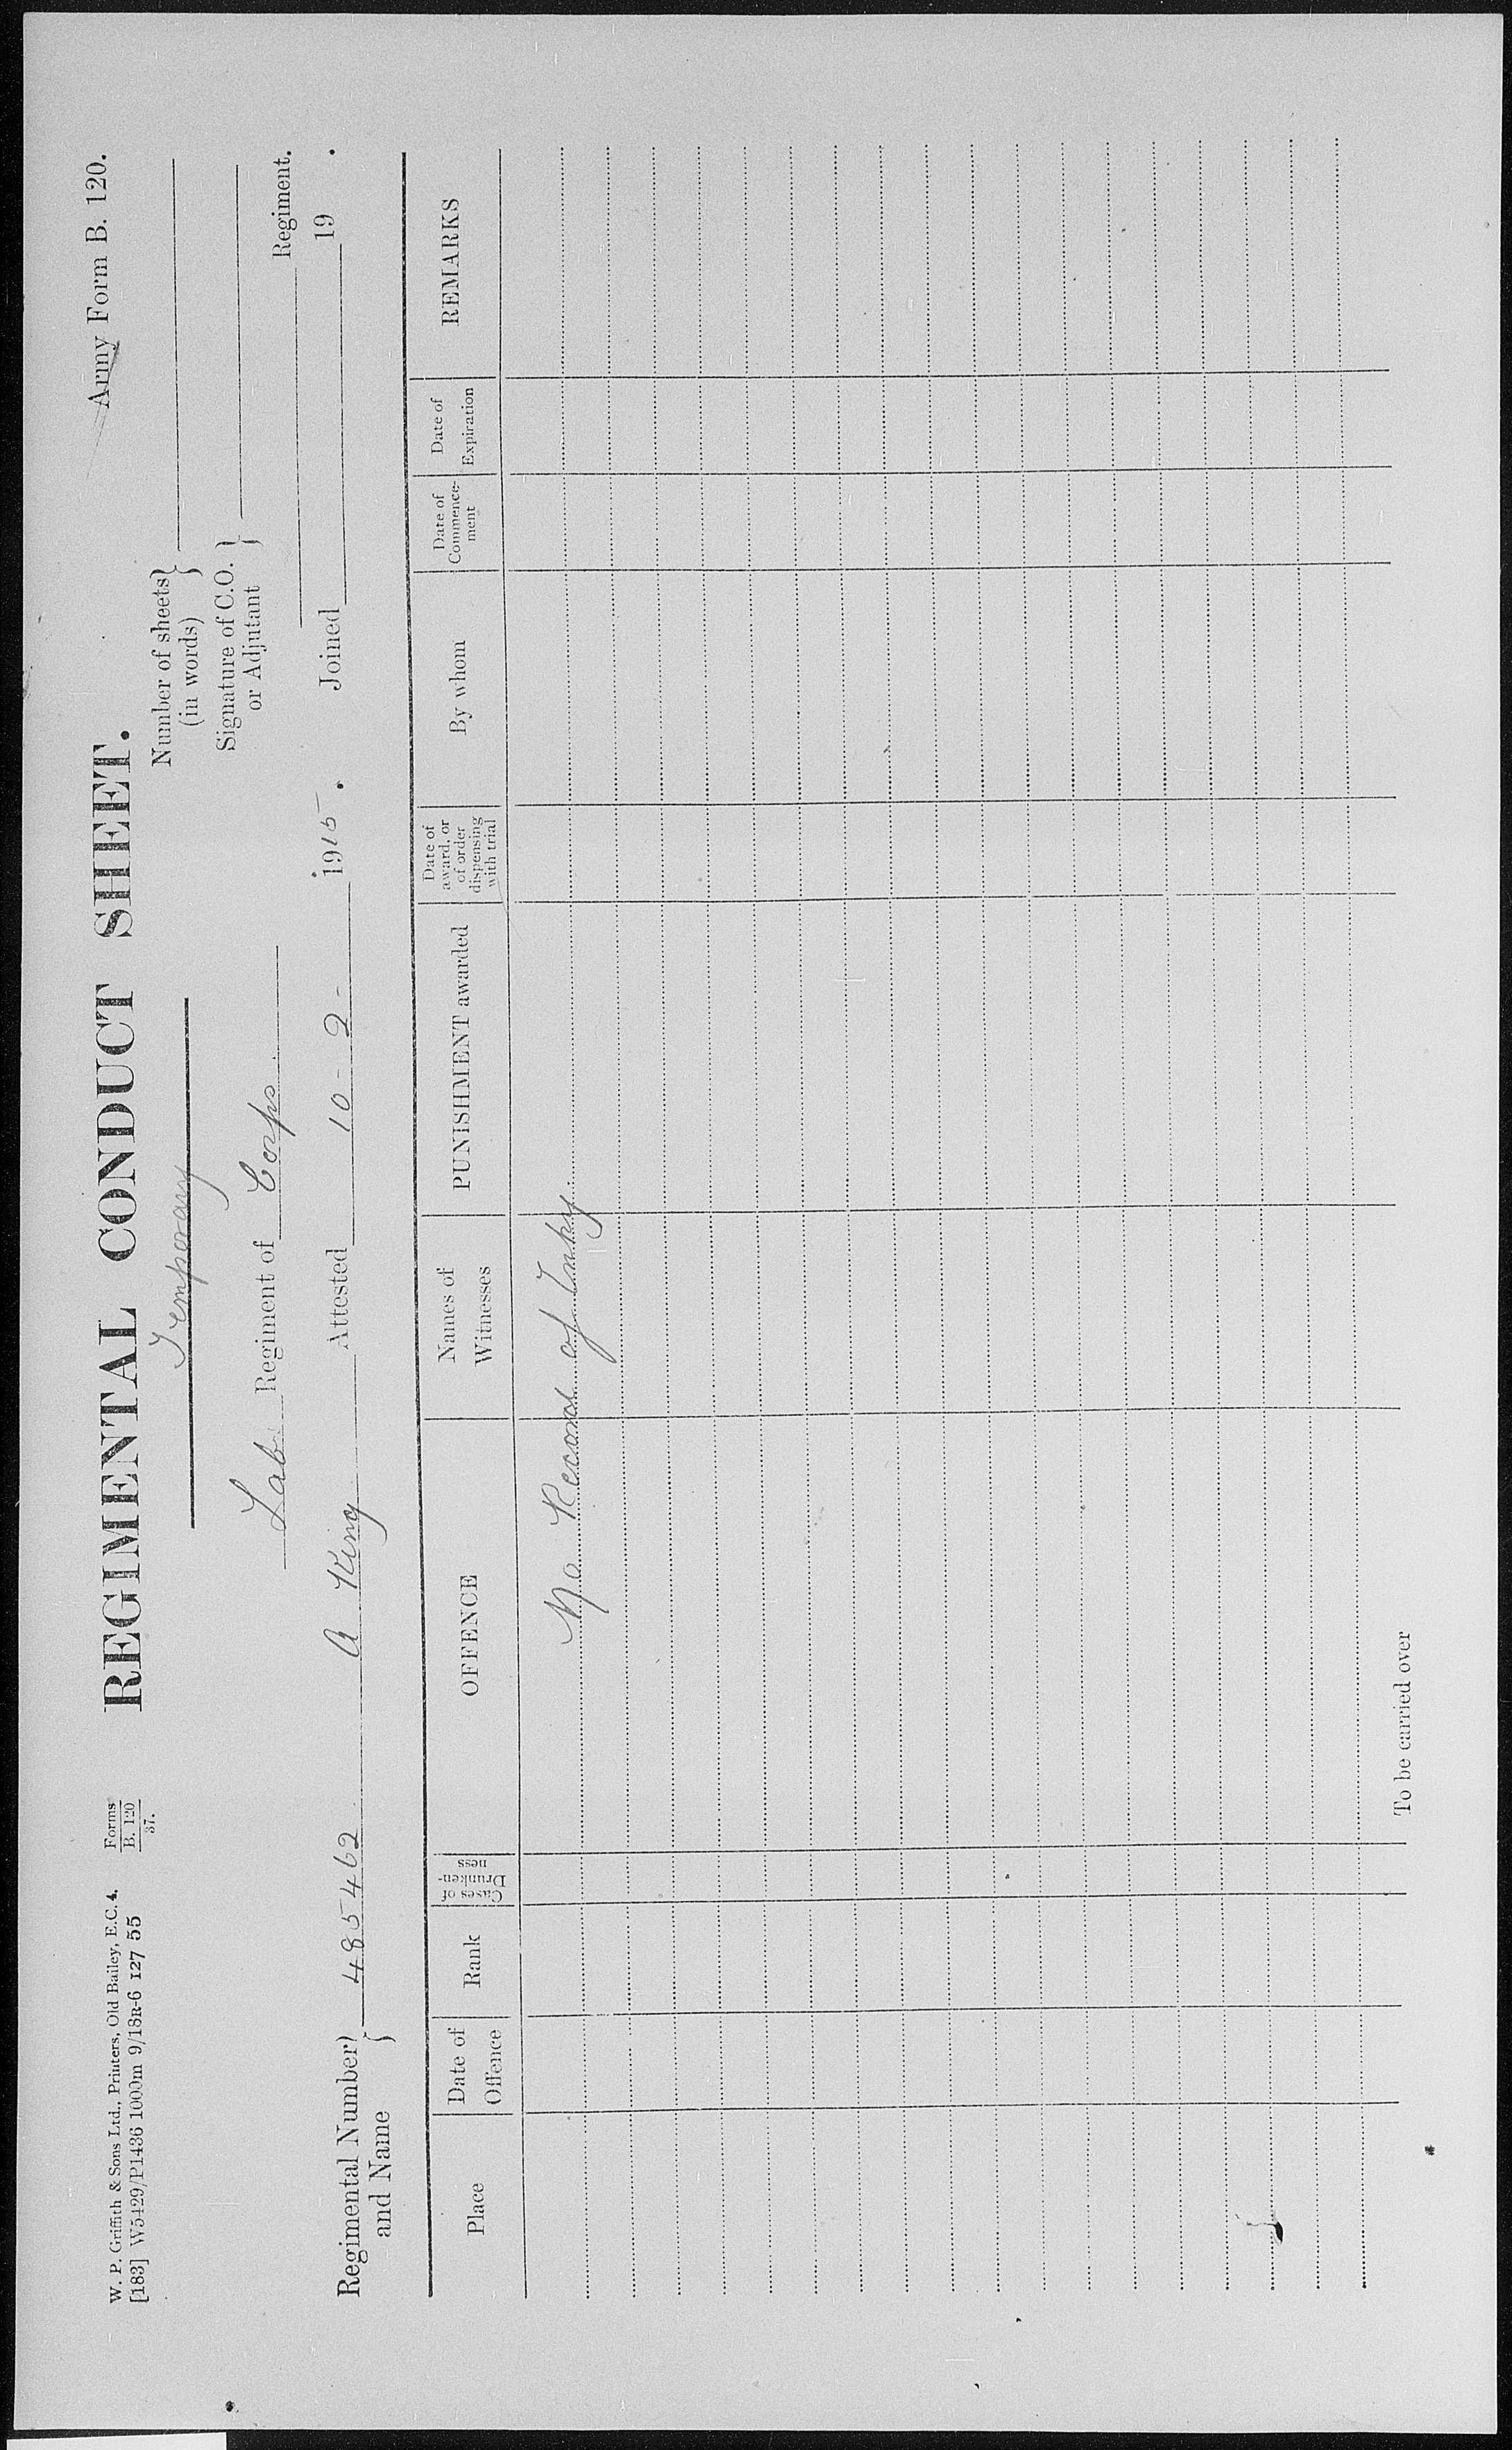 W. P. Griffith & Sons Ltd., Printers, Old Bailey, E.C. 4.
[183] W5429/P1436 1000m 9/18R-6 127 55
Forms
B. 120
37.
Army Form B. 120.
REGIMENTAL CONDUCT SHEET.
Temporary
Number of sheets
(in words)
Signature of C.O.
or Adjutant
Lab. Regiment of Corps
Regiment.
Regimental Number
and Name
485462 A King Attested 10 - 2 - 1915. Joined 19 .
Place
Date of
Offence
Rank
Cases of
Drunken-
ness
OFFENCE
Names of
Witnesses
PUNISHMENT awarded
Date of
award, or
of order
dispensing
with trial
By whom
Date of
Commence-
ment
Date of
Expiration
REMARKS
No Record of
To be carried over